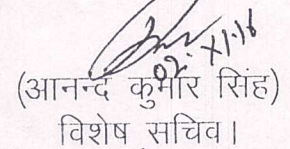 02.XI.16
(आनन्द कुमार सिंह)
विशेष सचिव।